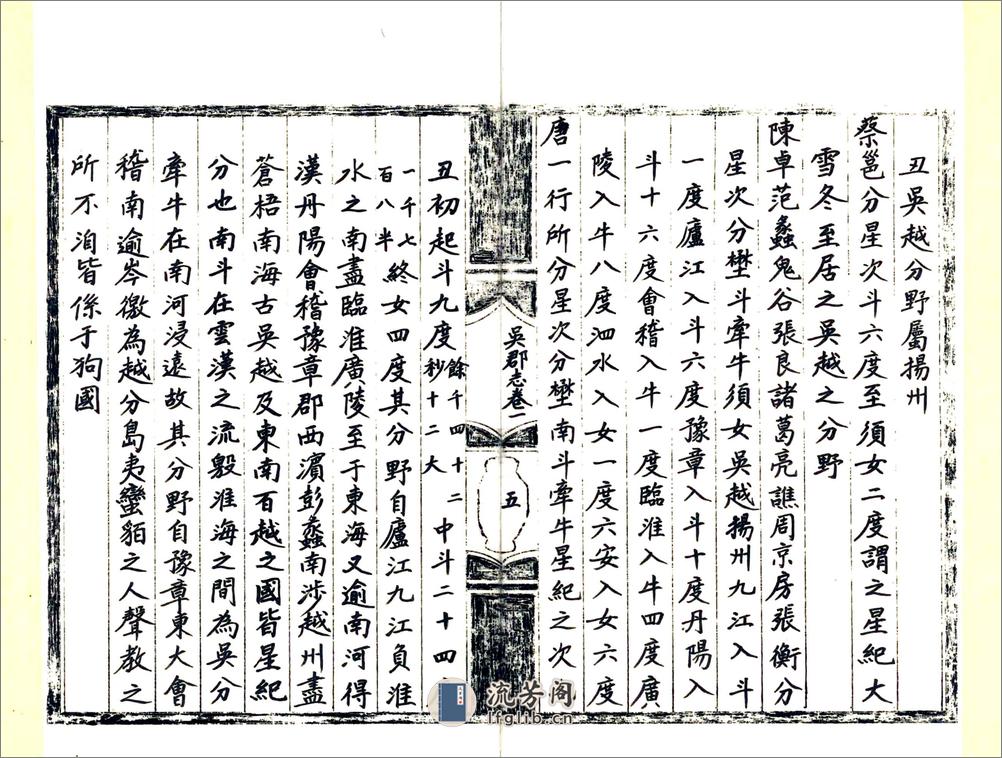 丑吳越分野屬揚州
蔡邕分星次斗六度至須女二度謂之星紀大
雪冬至居之吳越之分野
陳卓范蠡鬼谷張良諸葛亮譙周京房張衡分
星次分埜斗牽牛須女吳越揚州九江入斗
一度廬江入斗六度豫章入斗十度丹陽入
斗十六度會稽入牛一度臨淮入牛四度廣
陵入牛八度泗水入女一度六安入女六度
唐一行所分星次分埜南斗牽牛星紀之次
吳郡志卷一
五
丑初起斗九度餘千四十二秒十二大中斗二十四
一千七百八半終女四度其分野自廬江九江負淮
水之南盡臨淮廣陵至于東海又逾南河得
漢丹陽會稽豫章郡西濱彭蠡南涉越州盡
蒼梧南海古吳越及東南百越之國皆星紀
分也南斗在雲漢之流㲃淮海之間為吳分
牽牛在南河浸遠故其分野自豫章東大會
稽南逾岑徼為越分島夷蠻貊之人聲教之
所不洎皆係于狗國
流芳阁
lfglib.cn